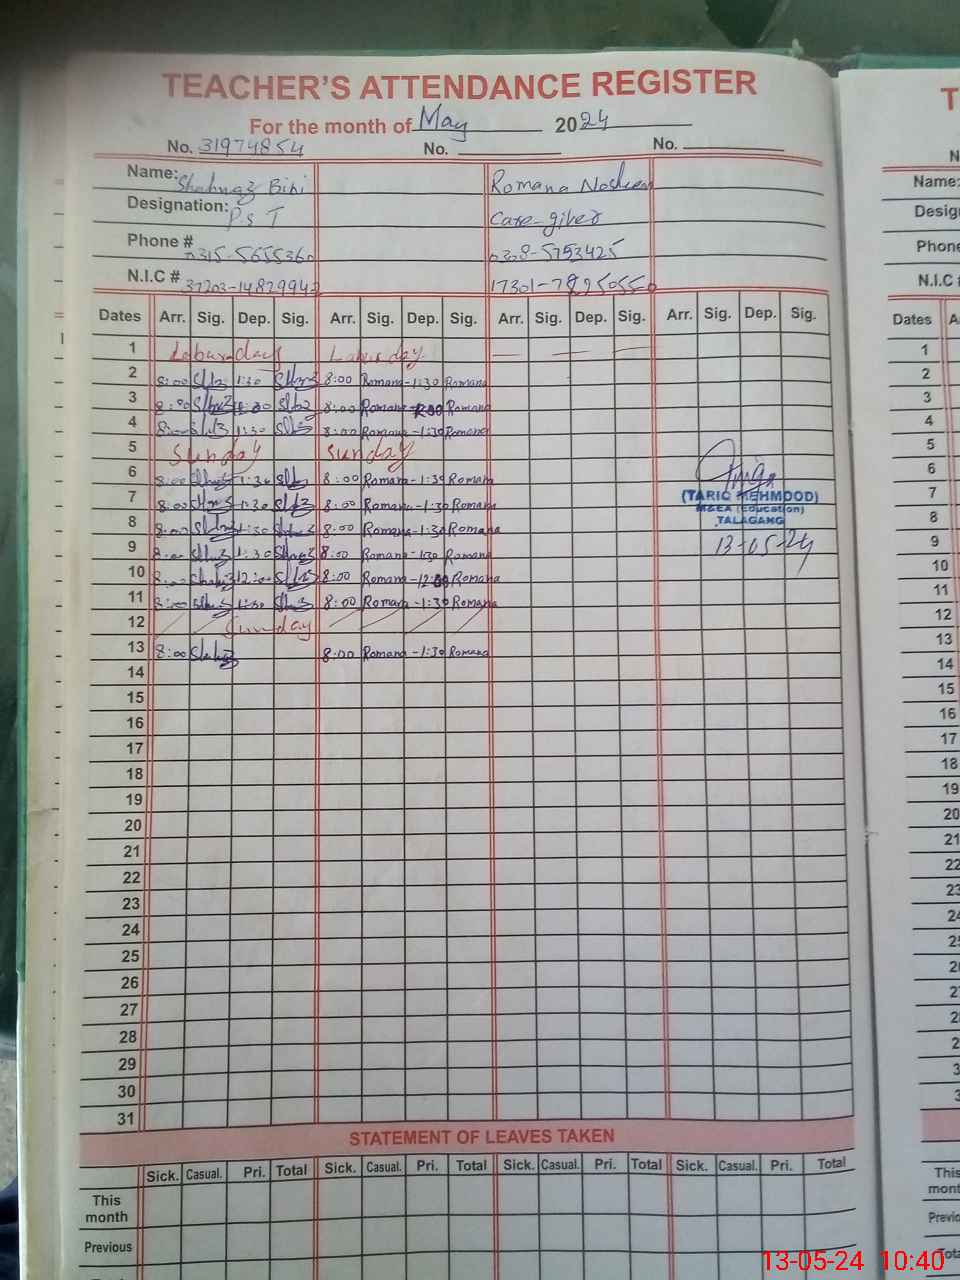 TEACHER'S ATTENDANCE REGISTER
For the month of May 2024
No. 31974854 No. No.
Name: Shahnaz Bibi Romana Nosheen
Designation: P.S T Care-giver
Phone # 0315-5655360
N.I.C #
Dates Arr. Sig. Dep. Sig. Arr. Sig. Dep. Sig. Arr. Sig. Dep. Sig. Arr. Sig. Dep. Sig.
1 Labour day Labur day
2 8:00 1:30 8:00 Romana - 1:30 Romana
3 8:00 8:00 Romana Romana
4 8:00 1:30 8:00 Romana - 1:30 Romana
5 Sunday Sunday
6 8:00 1:30 8:00 Romana - 1:30 Romana
7 8:00 1:30 8:00 Romana - 1:30 Romana
8 8:00 1:30 8:00 Romana - 1:30 Romana
9 8:00 1:30 8:00 Romana - 1:30 Romana
10 8:00 12:00 8:00 Romana - 12:00 Romana
11 8:00 1:30 8:00 Romana - 1:30 Romana
12 Sunday
13 8:00 8:00 Romana - 1:30 Romana
(TARIQ MEHMOOD)
M&EA (Education)
TALAGANG
13-05-24
14
15
16
17
18
19
20
21
22
23
24
25
26
27
28
29
30
31
STATEMENT OF LEAVES TAKEN
Sick. Casual. Pri. Total Sick. Casual. Pri. Total Sick. Casual. Pri. Total Sick. Casual. Pri. Total
This month
Previous
T
N
Name:
Desig
Phone
N.I.C #
Dates A
1
2
3
4
5
6
7
8
9
10
11
12
13
14
15
16
17
18
19
20
21
22
23
This
mont
Previo
Tota
13-05-24 10:40